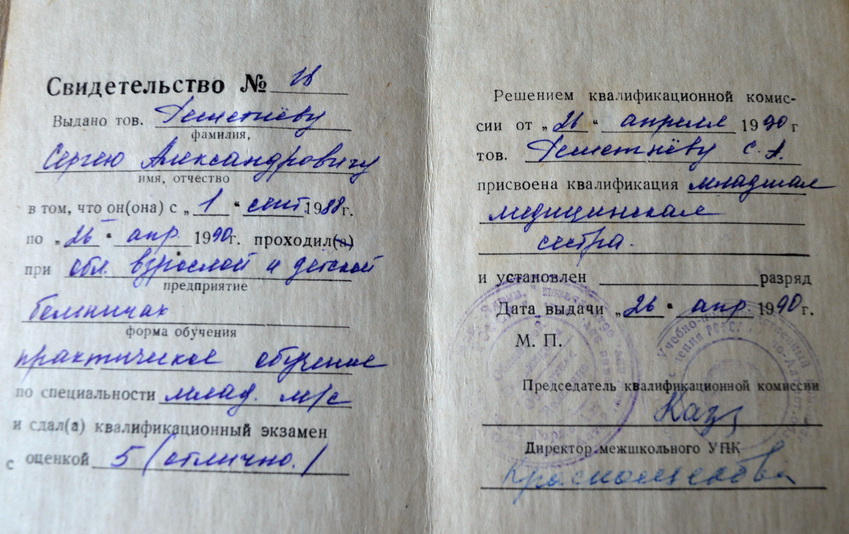 Свидетельство №
Выдано тов.
фамилия,
Сергею Александровичу
имя, отчество
в том, что он(она) с „1“ сент. 1988г.
по „26“ апр 1990г. проходил(а)
при обл. взрослой и детской
предприятие
больничах
форма обучения
практическое обучение
по специальности млад. м/с
и сдал(а) квалификационный экзамен
с оценкой 5 (отлично.)
Решением квалификационной комис-
сии от „26“ апреля 1990г
тов. С. А.
присвоена квалификация младшая
медицинская
сестра.
и установлен разряд
Дата выдачи „26“ апр. 1990г.
М. П.
Председатель квалификационной комиссии
Директор межшкольного УПК